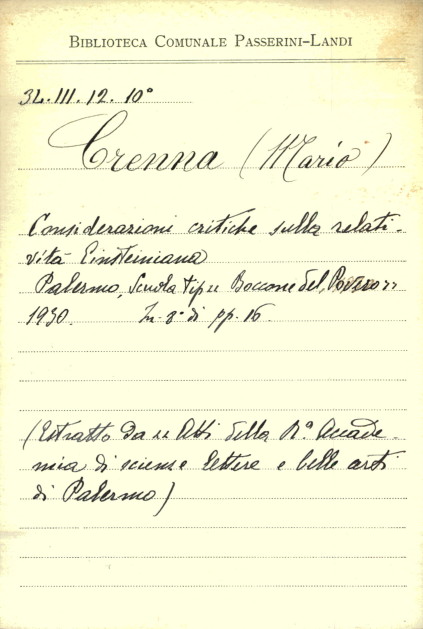 BIBLIOTECA COMUNALE PASSERINI-LANDI
3L.III.12.10°
Crenna (Mario)
Considerazioni critiche sulla relati-
vità Einsteiniana
Palermo, Scuola tip. "Boccone del Povero"
1930. In-8° di pp. 16.
(Estratto da "Atti della R.ª Accade-
mia di scienze lettere e belle arti
di Palermo)